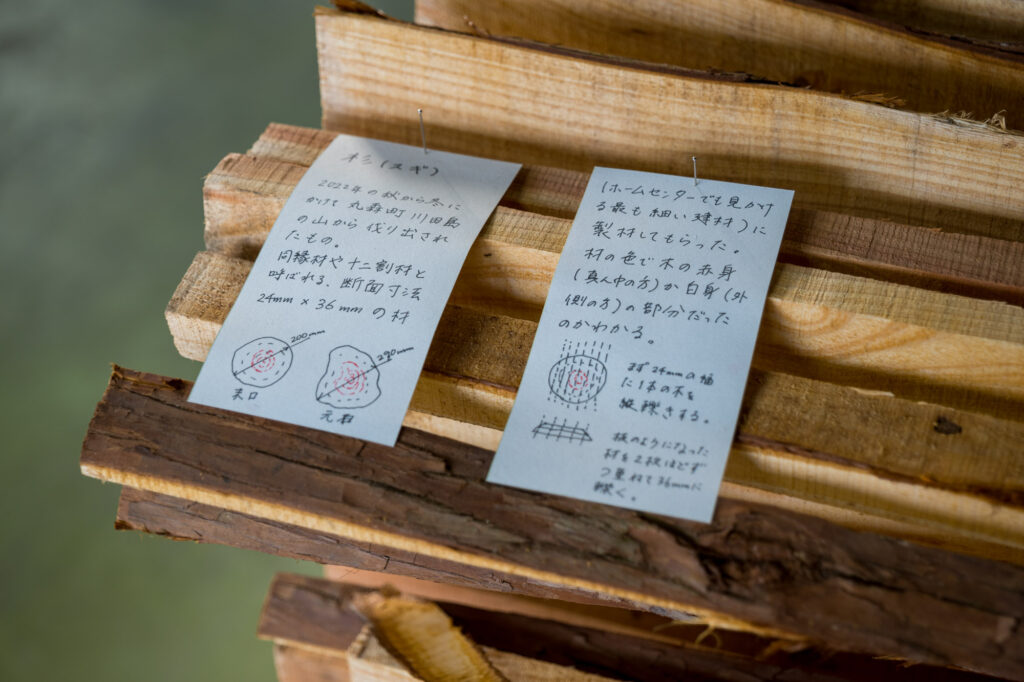 杉(スギ)
2022年の秋から冬に
かけて 丸森町 川田島
の山から 伐り出され
たもの。
同縁材や 十二割材と
呼ばれる、断面寸法
24mm × 36mm の材
200mm
末口
290mm
元口
(ホームセンターでも見かけ
る最も 細い 建材)に
製材してもらった。
材の色で木の赤身
(真ん中の方)か白身(外
側の方)の部分だった
のかわかる。
まず24mmの幅
に1本の木を
縦挽きする。
板のようになった
材を2枚ほどず
つ重ねて36mmに
挽く。